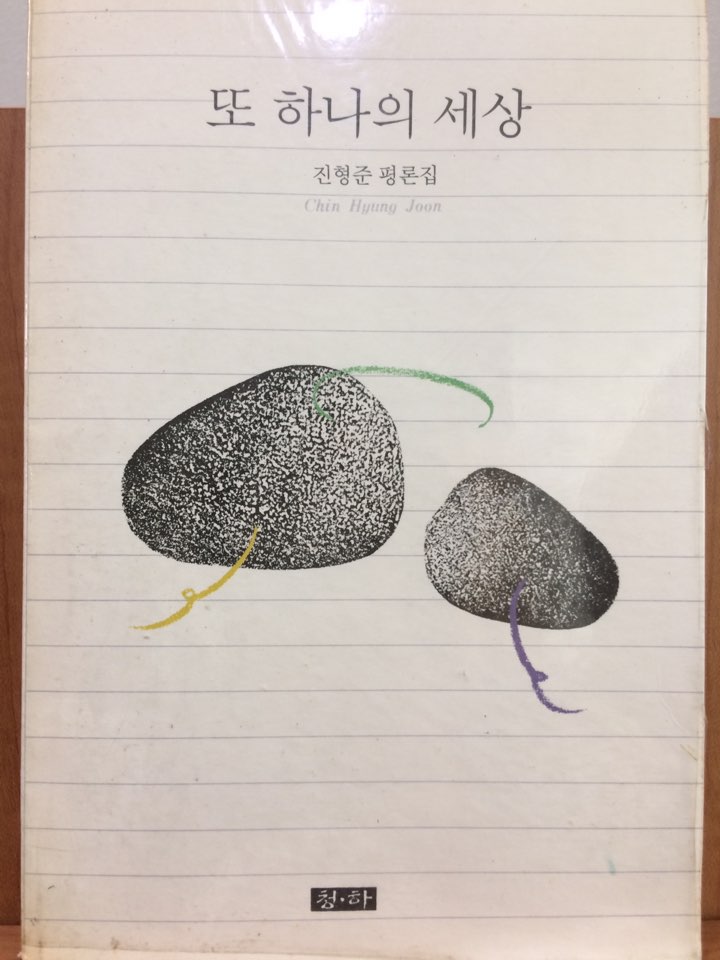 또 하나의 세상
진형준 평론집
Chin Hyung Joon
청·하